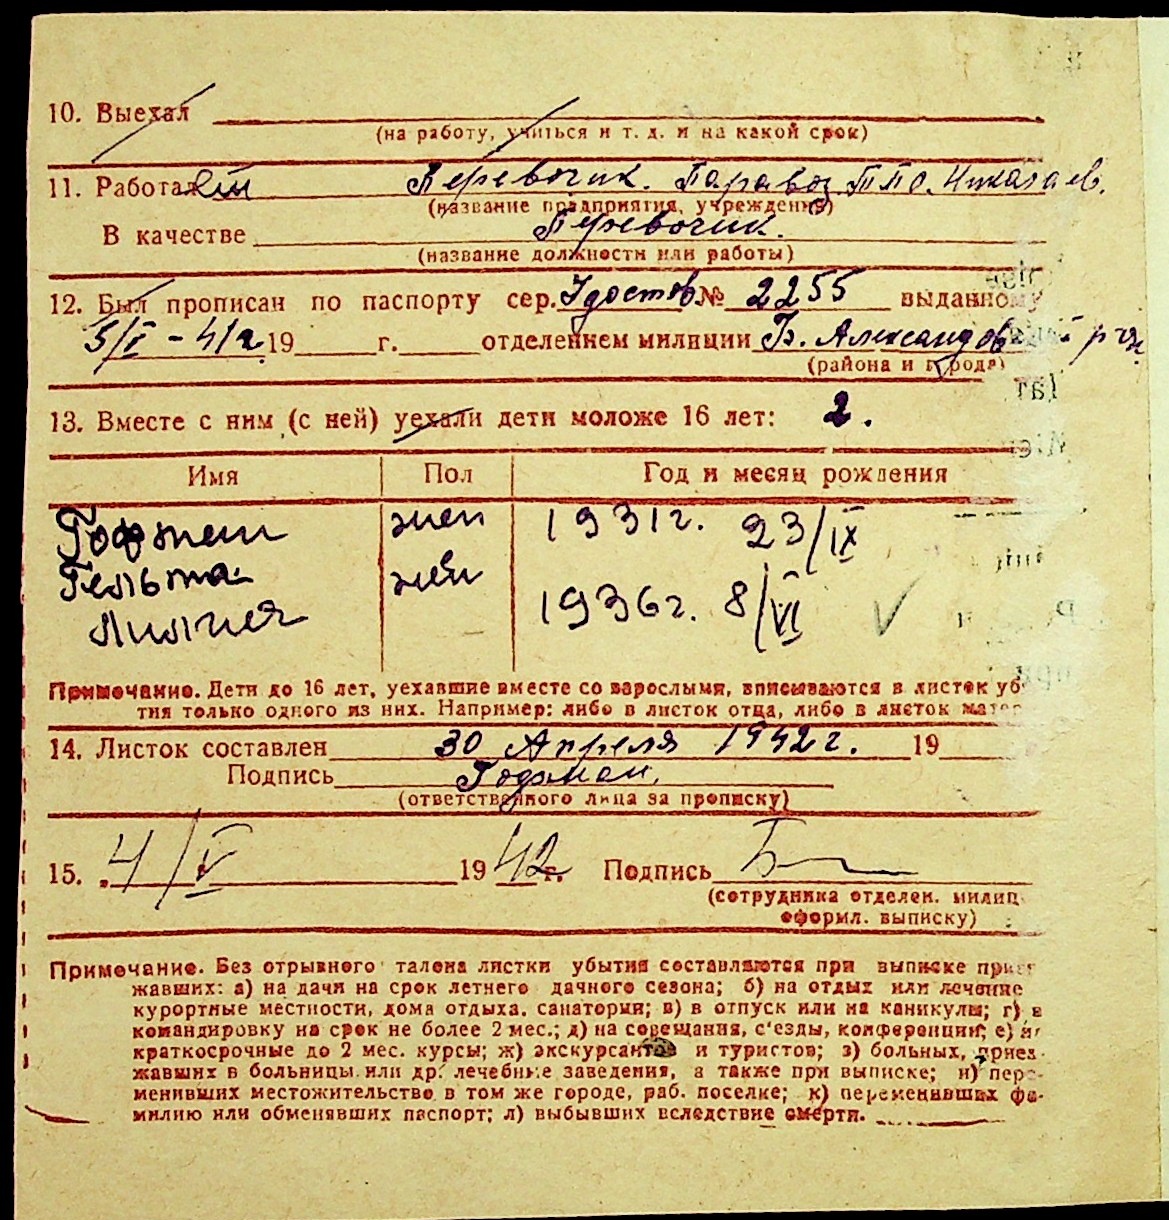 10. Выехал
(на работу, учиться и т. д. и на какой срок)
11. Работал Перевочик. Паравоз. Николаев.
(название предприятия, учреждения)
В качестве Перевочик.
(название должности или работы)
12. Был прописан по паспорту сер. Удостов. № 2255 выданному
5/I - 4/2 19 г. отделением милиции Б. Александров
(района и города)
13. Вместе с ним (с ней) уехали дети моложе 16 лет: 2.
Имя Пол Год и месяц рождения
жен 1931 г. 23/IX
жен 1936 г. 8/VI
Лилия
Примечание. Дети до 16 лет, уехавшие вместе со взрослыми, вписываются в листок уб
тия только одного из них. Например: либо в листок отца, либо в листок матер
14. Листок составлен 30 Апреля 1942 г. 19
Подпись
(ответственного лица за прописку)
15. 4/V 1942 г. Подпись
(сотрудника отделен. милиц
оформл. выписку)
Примечание. Без отрывного талона листки убытия составляются при выписке приез
жавших: а) на дачи на срок летнего дачного сезона; б) на отдых или лечение
курортные местности, дома отдыха, санатории; в) в отпуск или на каникулы; г) в
командировку на срок не более 2 мес.; д) на совещания, с'езды, конференции; е) н
краткосрочные до 2 мес. курсы; ж) экскурсантов и туристов; з) больных, приез
жавших в больницы или др. лечебные заведения, а также при выписке; и) пере-
менивших местожительство в том же городе, раб. поселке; к) переменивших фа-
милию или обменявших паспорт; л) выбывших вследствие смерти.